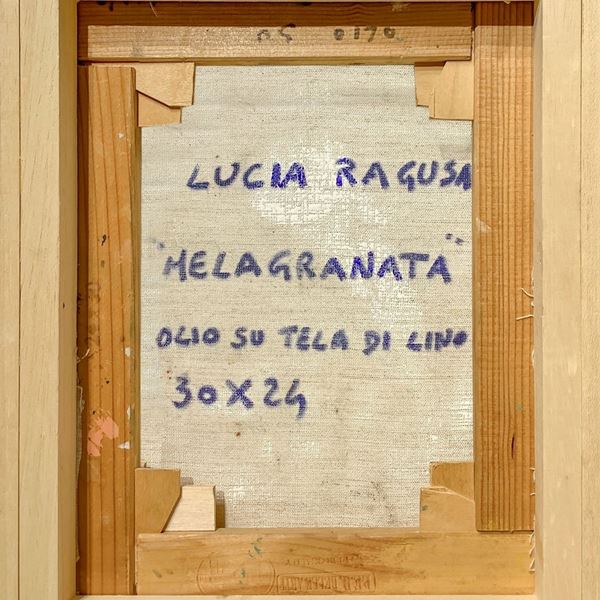 LUCIA RAGUSA
"MELAGRANATA"
OLIO SU TELA DI LINO
30X24